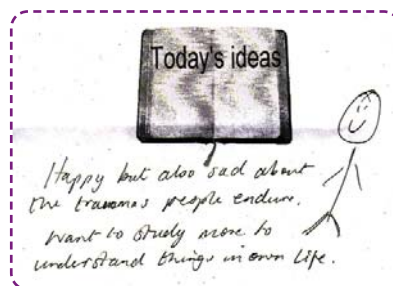 Today's ideas
Happy but also sad about
the traumas people endure.
Want to study more to
understand things in own life.